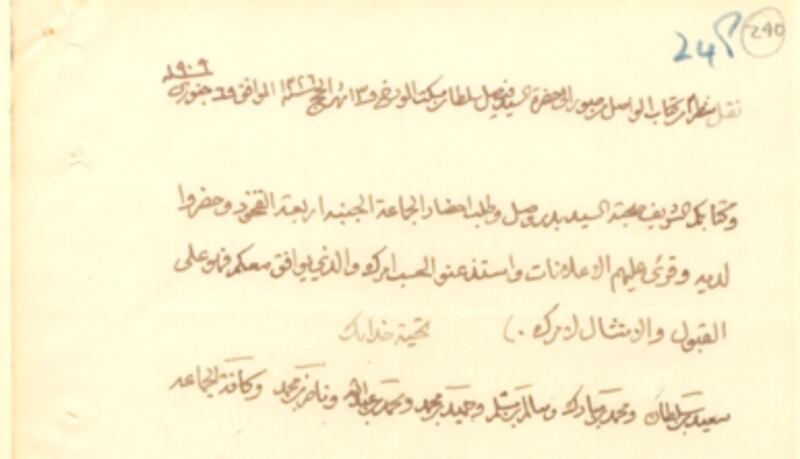 248 240
١٩٠٩
نقل منظر كتاب الواصل من صور الى حضرة السيد فيصل سلطان مسكت المورخ ١٣ شهر الحج ١٣٢٦ الموافق ٦ جنوري
وكتابك الشريف صحبة السيد بدر وصل وطلب احضار الجماعة الجنبه اربعة الفخوذ وحضروا
لديه وقرئ عليهم الاعلانات واستذعنوا لحسب امرك والذي يوافق معكم فهو على
القبول والامتثال لامرك . تحية خدامك
سعيد بن سلطان ومحمد بن مبارك وسالم بن وحميد بن محمد ومحمد بن عبدالله وناصر بن محمد وكافة الجماعه